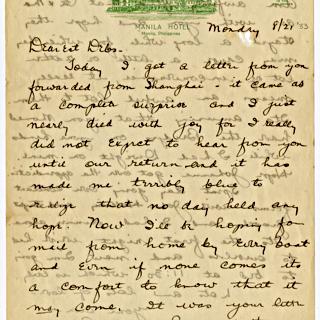 MANILA HOTEL
Manila, Philippines
Monday 8/21 '33
Dearest Debs-
Today I got a letter from you
forwarded from Shanghai - it came as
a complete surprise and I just
nearly died with joy for I really
did not expect to hear from you
until our return and it has
made me terribly blue to
realize that no day held any
hope. Now I'll be hoping for
mail from home by every boat
and even if none comes its
a comfort to know that it
may come. It was your letter